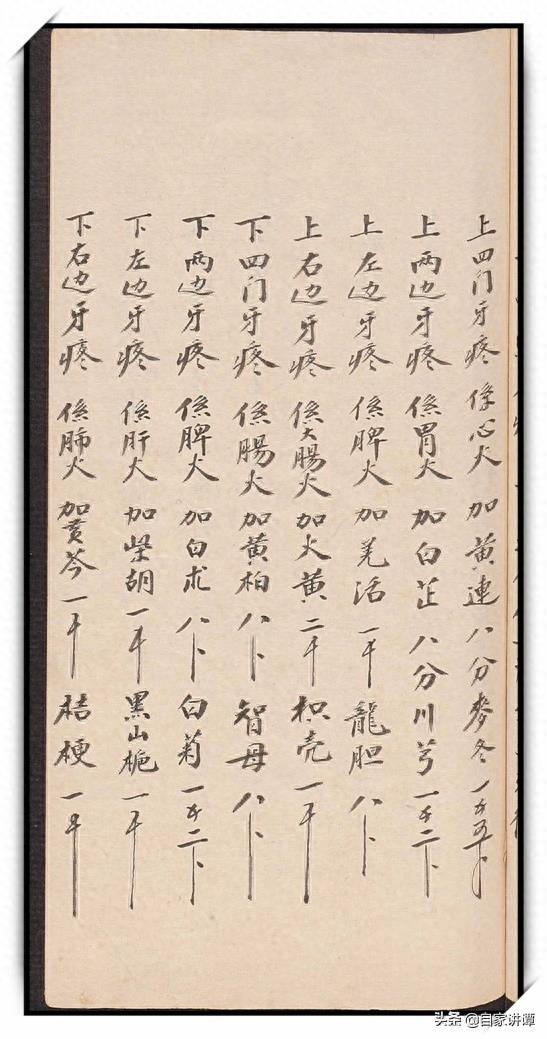 上四门牙疼 係心火 加黄連八分 麥冬一千五卜
上两边牙疼 係胃火 加白芷八分 川芎一千二卜
上左边牙疼 係脾火 加羌活一千 龍胆八卜
上右边牙疼 係大腸火 加火黄二千 枳壳一千
下四门牙疼 係腸火 加黄柏八卜 智母八卜
下两边牙疼 係脾火 加白朮八卜 白菊一千二卜
下左边牙疼 係肝火 加柴胡一千 黑山栀一千
下右边牙疼 係肺火 加黄芩一千 桔梗一千
头条 @自家讲谭